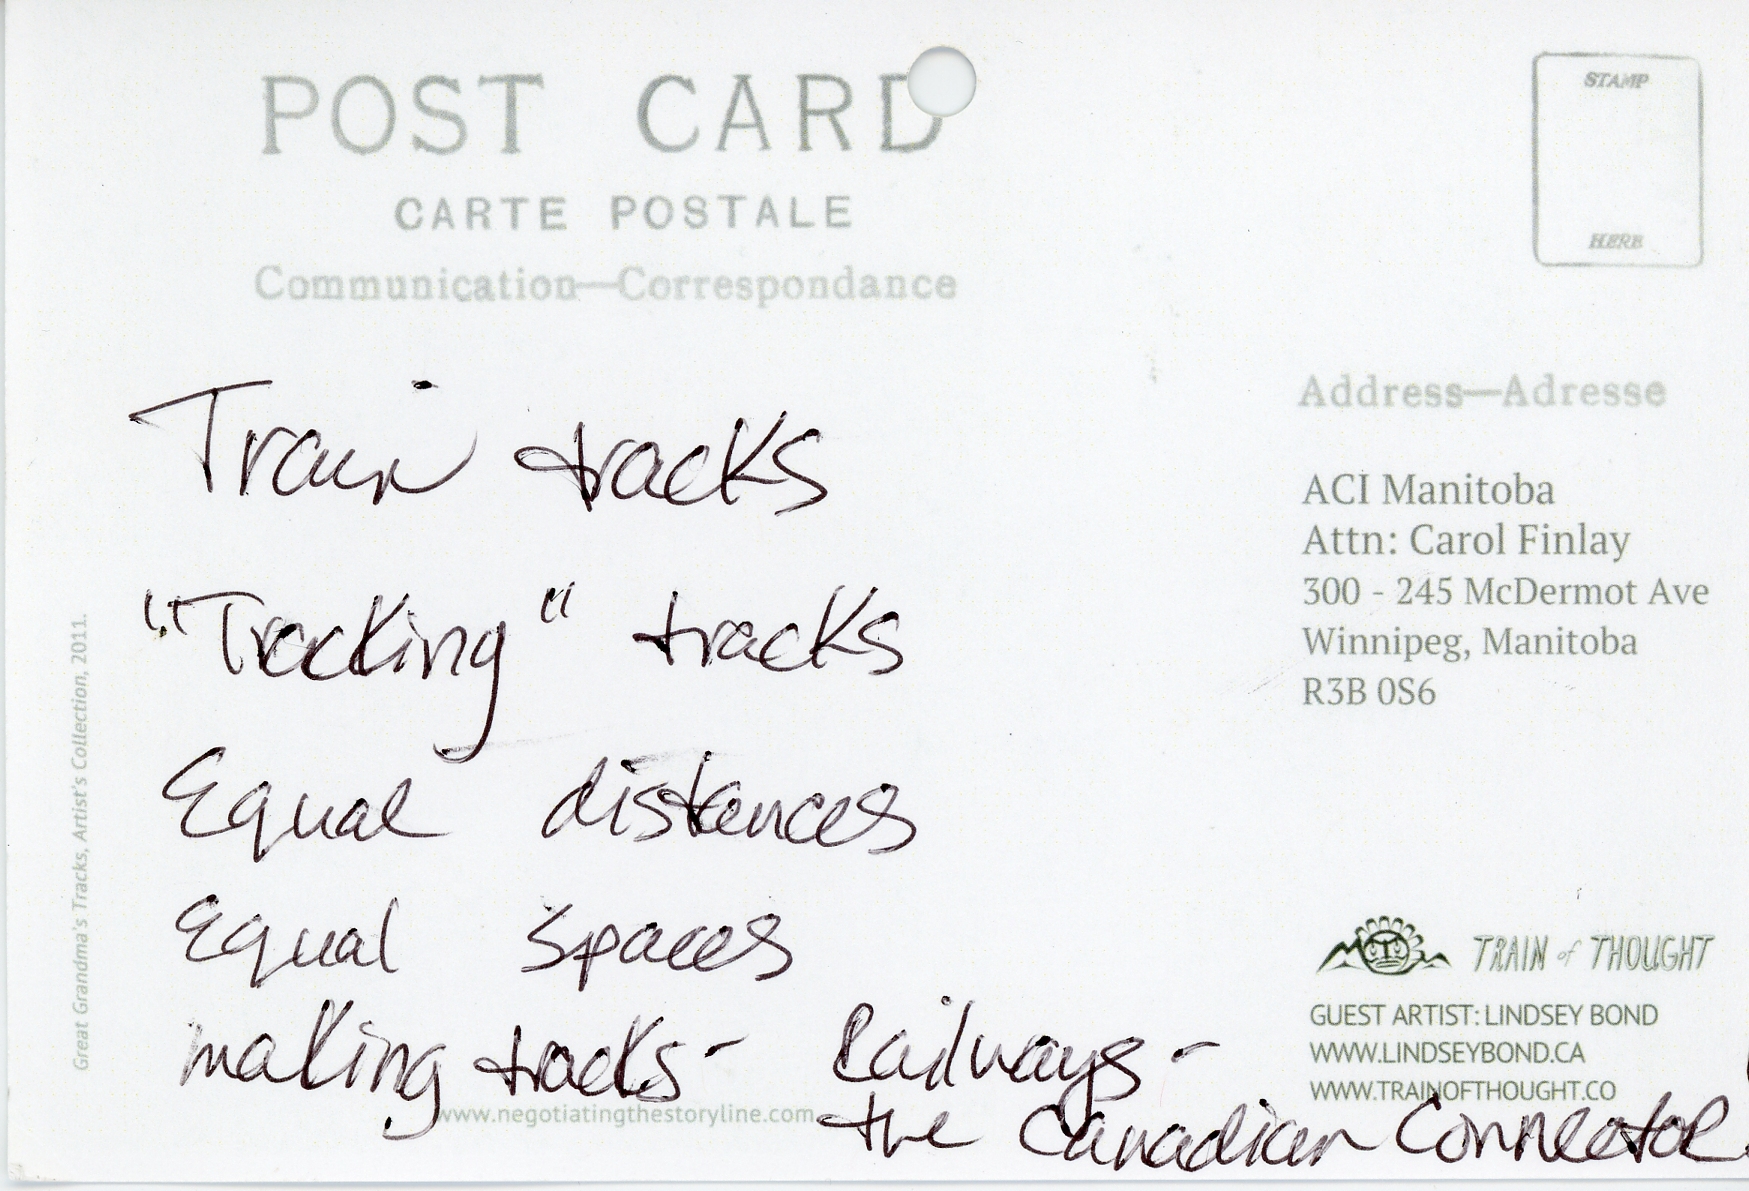 POST CARD
CARTE POSTALE
Communication—Correspondance
STAMP
HERE
Train tracks
"Tracking" tracks
Equal distances
Equal spaces
making tracks - Railways -
the Canadian Connector
www.negotiatingthestoryline.com
Great Grandma's Tracks, Artist's Collection, 2011.
Address—Adresse
ACI Manitoba
Attn: Carol Finlay
300 - 245 McDermot Ave
Winnipeg, Manitoba
R3B 0S6
TRAIN of THOUGHT
GUEST ARTIST: LINDSEY BOND
WWW.LINDSEYBOND.CA
WWW.TRAINOFTHOUGHT.CO